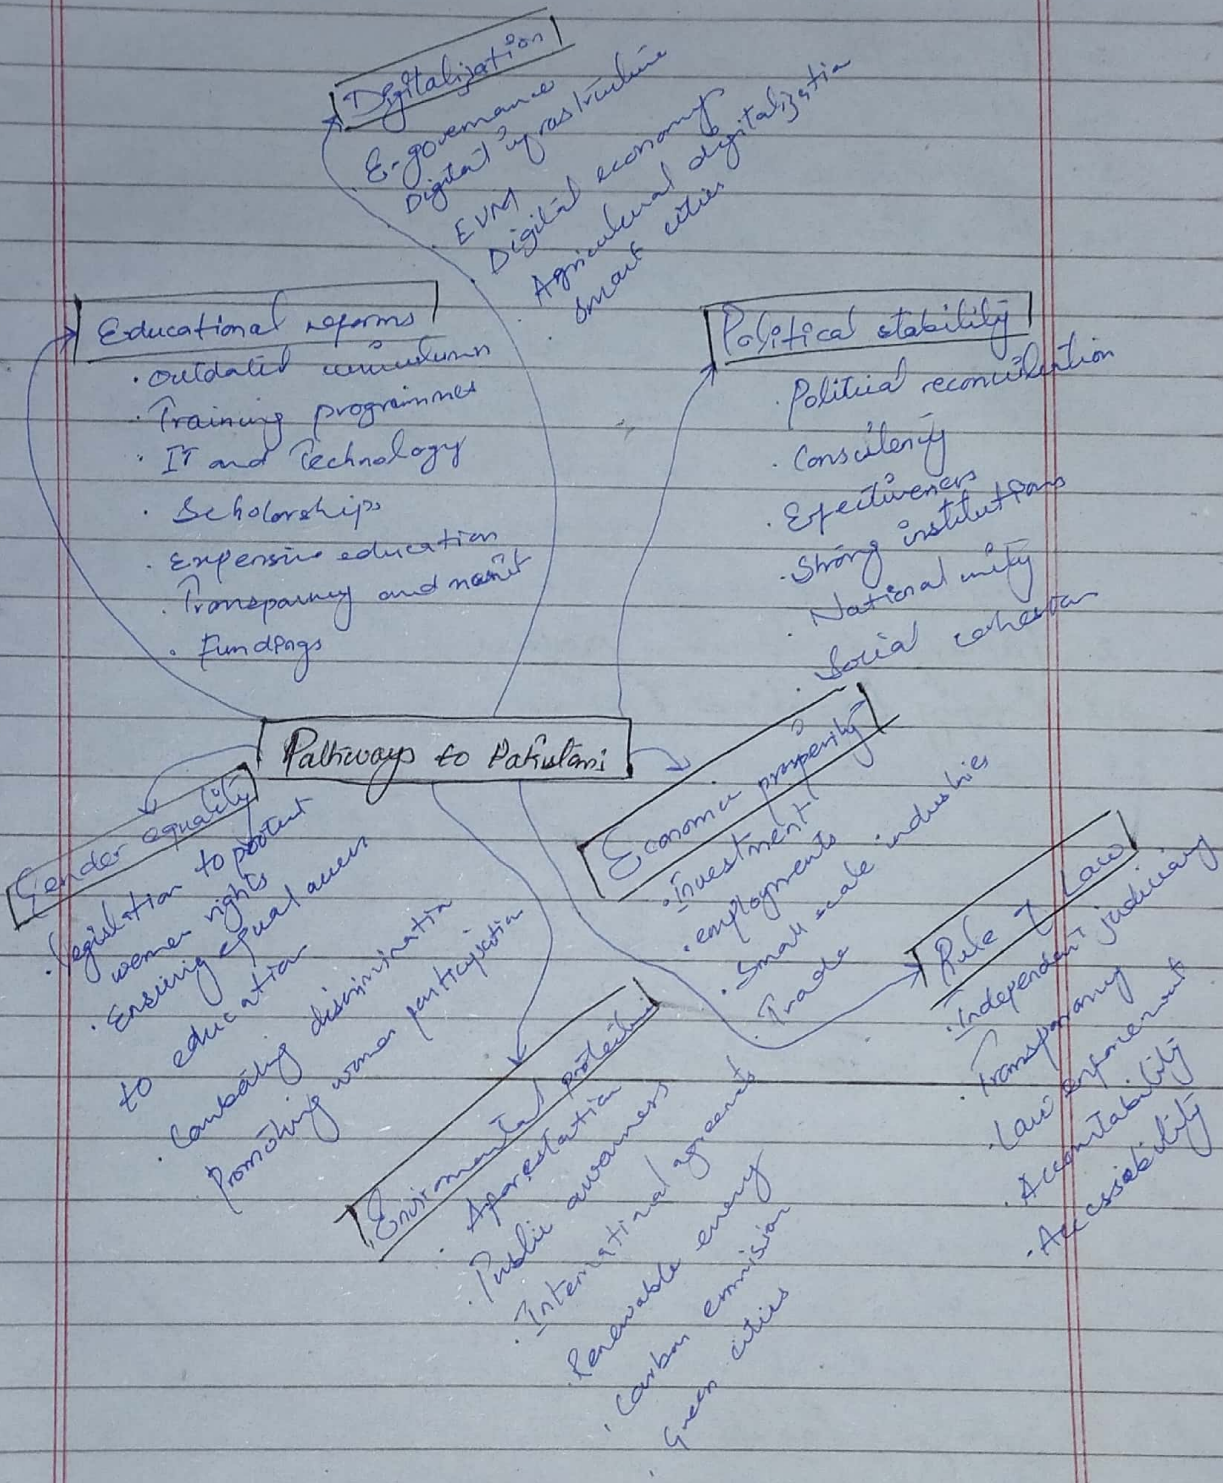 Digitalization
E-governance
Digital infrastructure
EVM
Digital economy
Agricultural digitalization
Smart cities
Educational reforms
· Outdated curriculum
· Training programmes
· IT and Technology
· Scholorships
· Expensive education
· Transparency and merit
· Fundings
Political stability
· Political reconciliation
· Consistency
· Effectiveness
· Strong institutions
· National unity
· Social cohesion
Pathways to Pakistani
Gender equality
· Legislation to protect
women rights
· Ensuring equal access
to education
· Combating discrimination
Promoting women participation
Economic prosperity
· Investment
· employments
· Small scale industries
· Trade
Rule of Law
· Independent judiciary
· Transparency
· Law enforcement
· Accountability
· Accessibility
Environmental protection
· Aforestation
· Public awarness
· International agreements
· Renewable energy
· Carbon emmission
· Green cities